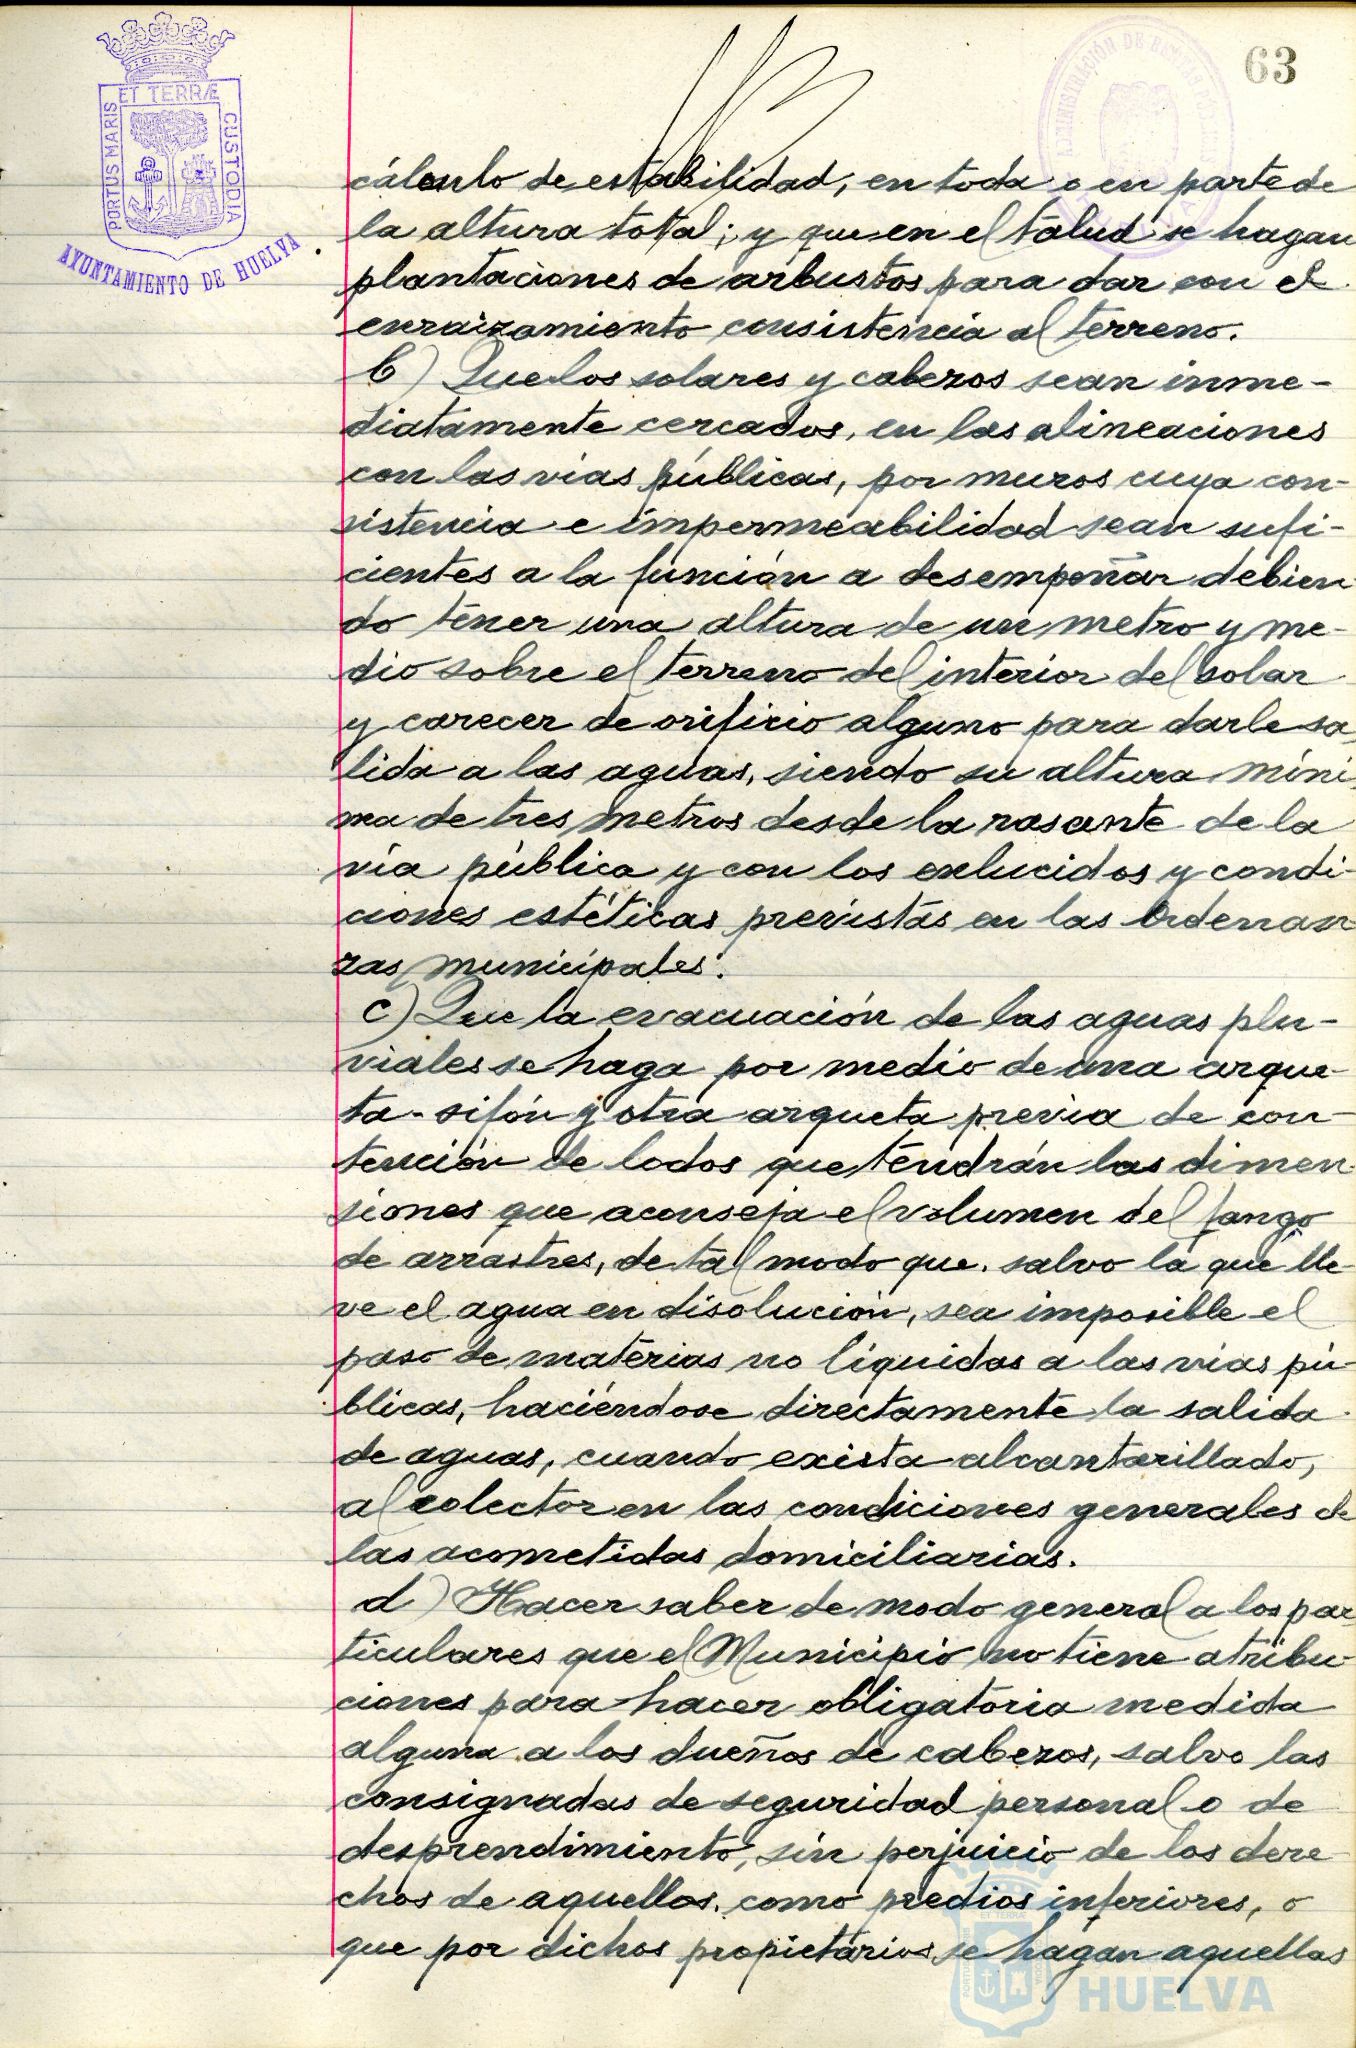 63
ET TERRÆ
PORTUS MARIS
CUSTODIA
AYUNTAMIENTO DE HUELVA
ADMINISTRACIÓN DE RENTAS PÚBLICAS
cálculo de estabilidad, en toda o en parte de
la altura total; y que en el talud se hagan
plantaciones de arbustos para dar con el
enraizamiento consistencia al terreno.
b) Que los solares y cabezos sean inme-
diatamente cercados, en las alineaciones
con las vías públicas, por muros cuya con-
sistencia e impermeabilidad sean sufi-
cientes a la función a desempeñar debien
do tener una altura de un metro y me-
dio sobre el terreno del interior del solar
y carecer de orificio alguno para darle sa
lida a las aguas, siendo su altura míni
ma de tres metros desde la rasante de la
vía pública y con los enlucidos y condi-
ciones estéticas previstas en las Ordenan-
zas municipales.
c) Que la evacuación de las aguas plu-
viales se haga por medio de una arque-
ta-sifón y otra arqueta previa de con-
tención de lodos que tendrán las dimen
siones que aconseja el volumen del fango
de arrastres, de tal modo que, salvo la que lle-
ve el agua en disolución, sea imposible el
paso de materias no líquidas a las vías pú-
blicas, haciéndose directamente la salida
de aguas, cuando exista alcantarillado,
al colector en las condiciones generales de
las acometidas domiciliarias.
d) Hacer saber de modo general a los par
ticulares que el Municipio no tiene atribu-
ciones para hacer obligatoria medida
alguna a los dueños de cabezos, salvo las
consignadas de seguridad personal o de
desprendimiento, sin perjuicio de los dere-
chos de aquellos, como predios inferiores, o
que por dichos propietarios se hagan aquellas
HUELVA